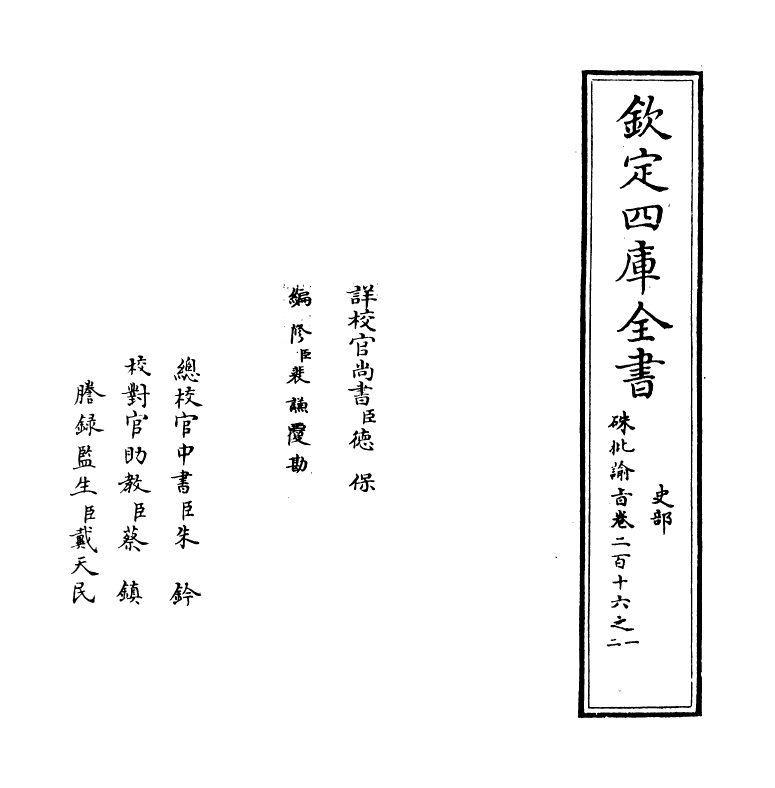 欽定四庫全書
史部
硃批諭旨卷二百十六之一
二
詳校官尚書臣德保
編修臣裴謙覆勘
總校官中書臣朱鈐
校對官助教臣蔡鎮
謄錄監生臣戴天民